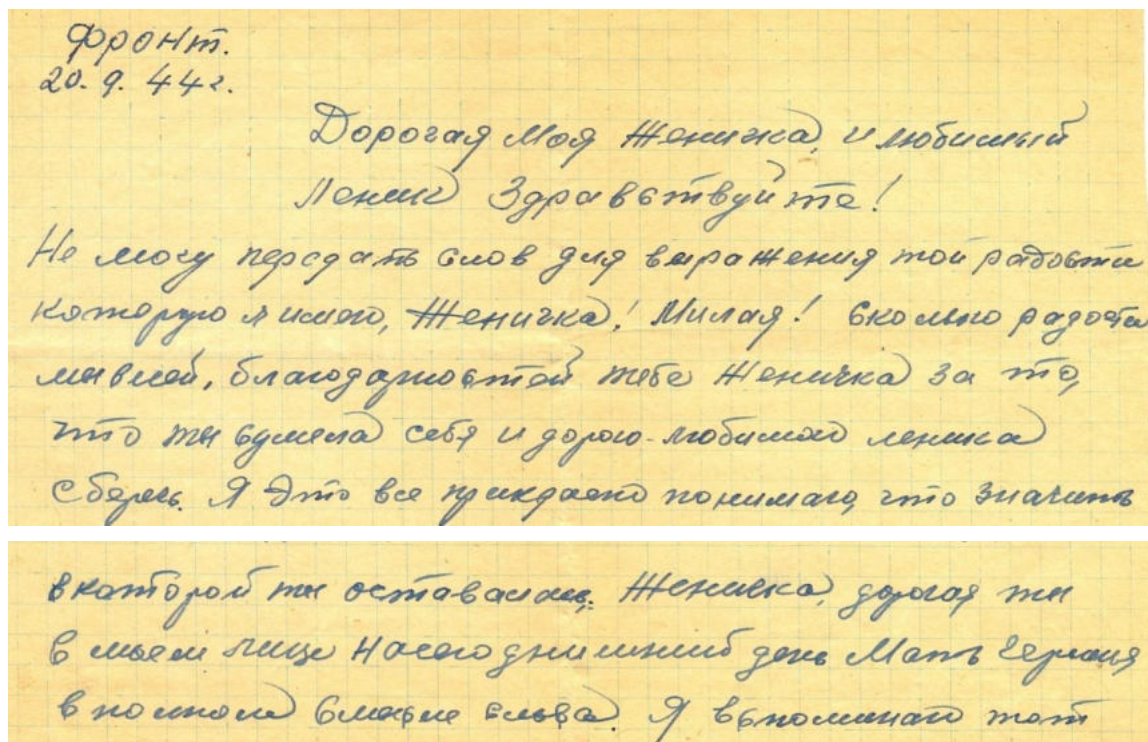 Фронт.
20. 9. 44 г.
Дорогая Моя Женичка, и любимый
Леник Здравствуйте!
Не могу передать слов для выражения той радости
которую я имею, Женичка! Милая! Сколько радости
благодарностей тебе Женичка за то,
что ты сумела себя и дорого-любимого леника
сберечь. Я Это все прикрасно понимаю, что значить
в каторой ты оставалась. Женичка, дорогая ты
в моем лице на сегоднишний день Мать Героиня
в полном смысле слова. Я вспоминаю тот